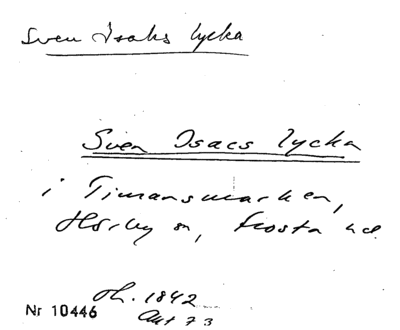 Sven Isaks lycka
Sven Isacs lycka
i Timansmarken,
Hörby sn, Frosta hd.
Th. 1842
Akt 73
Nr 10446